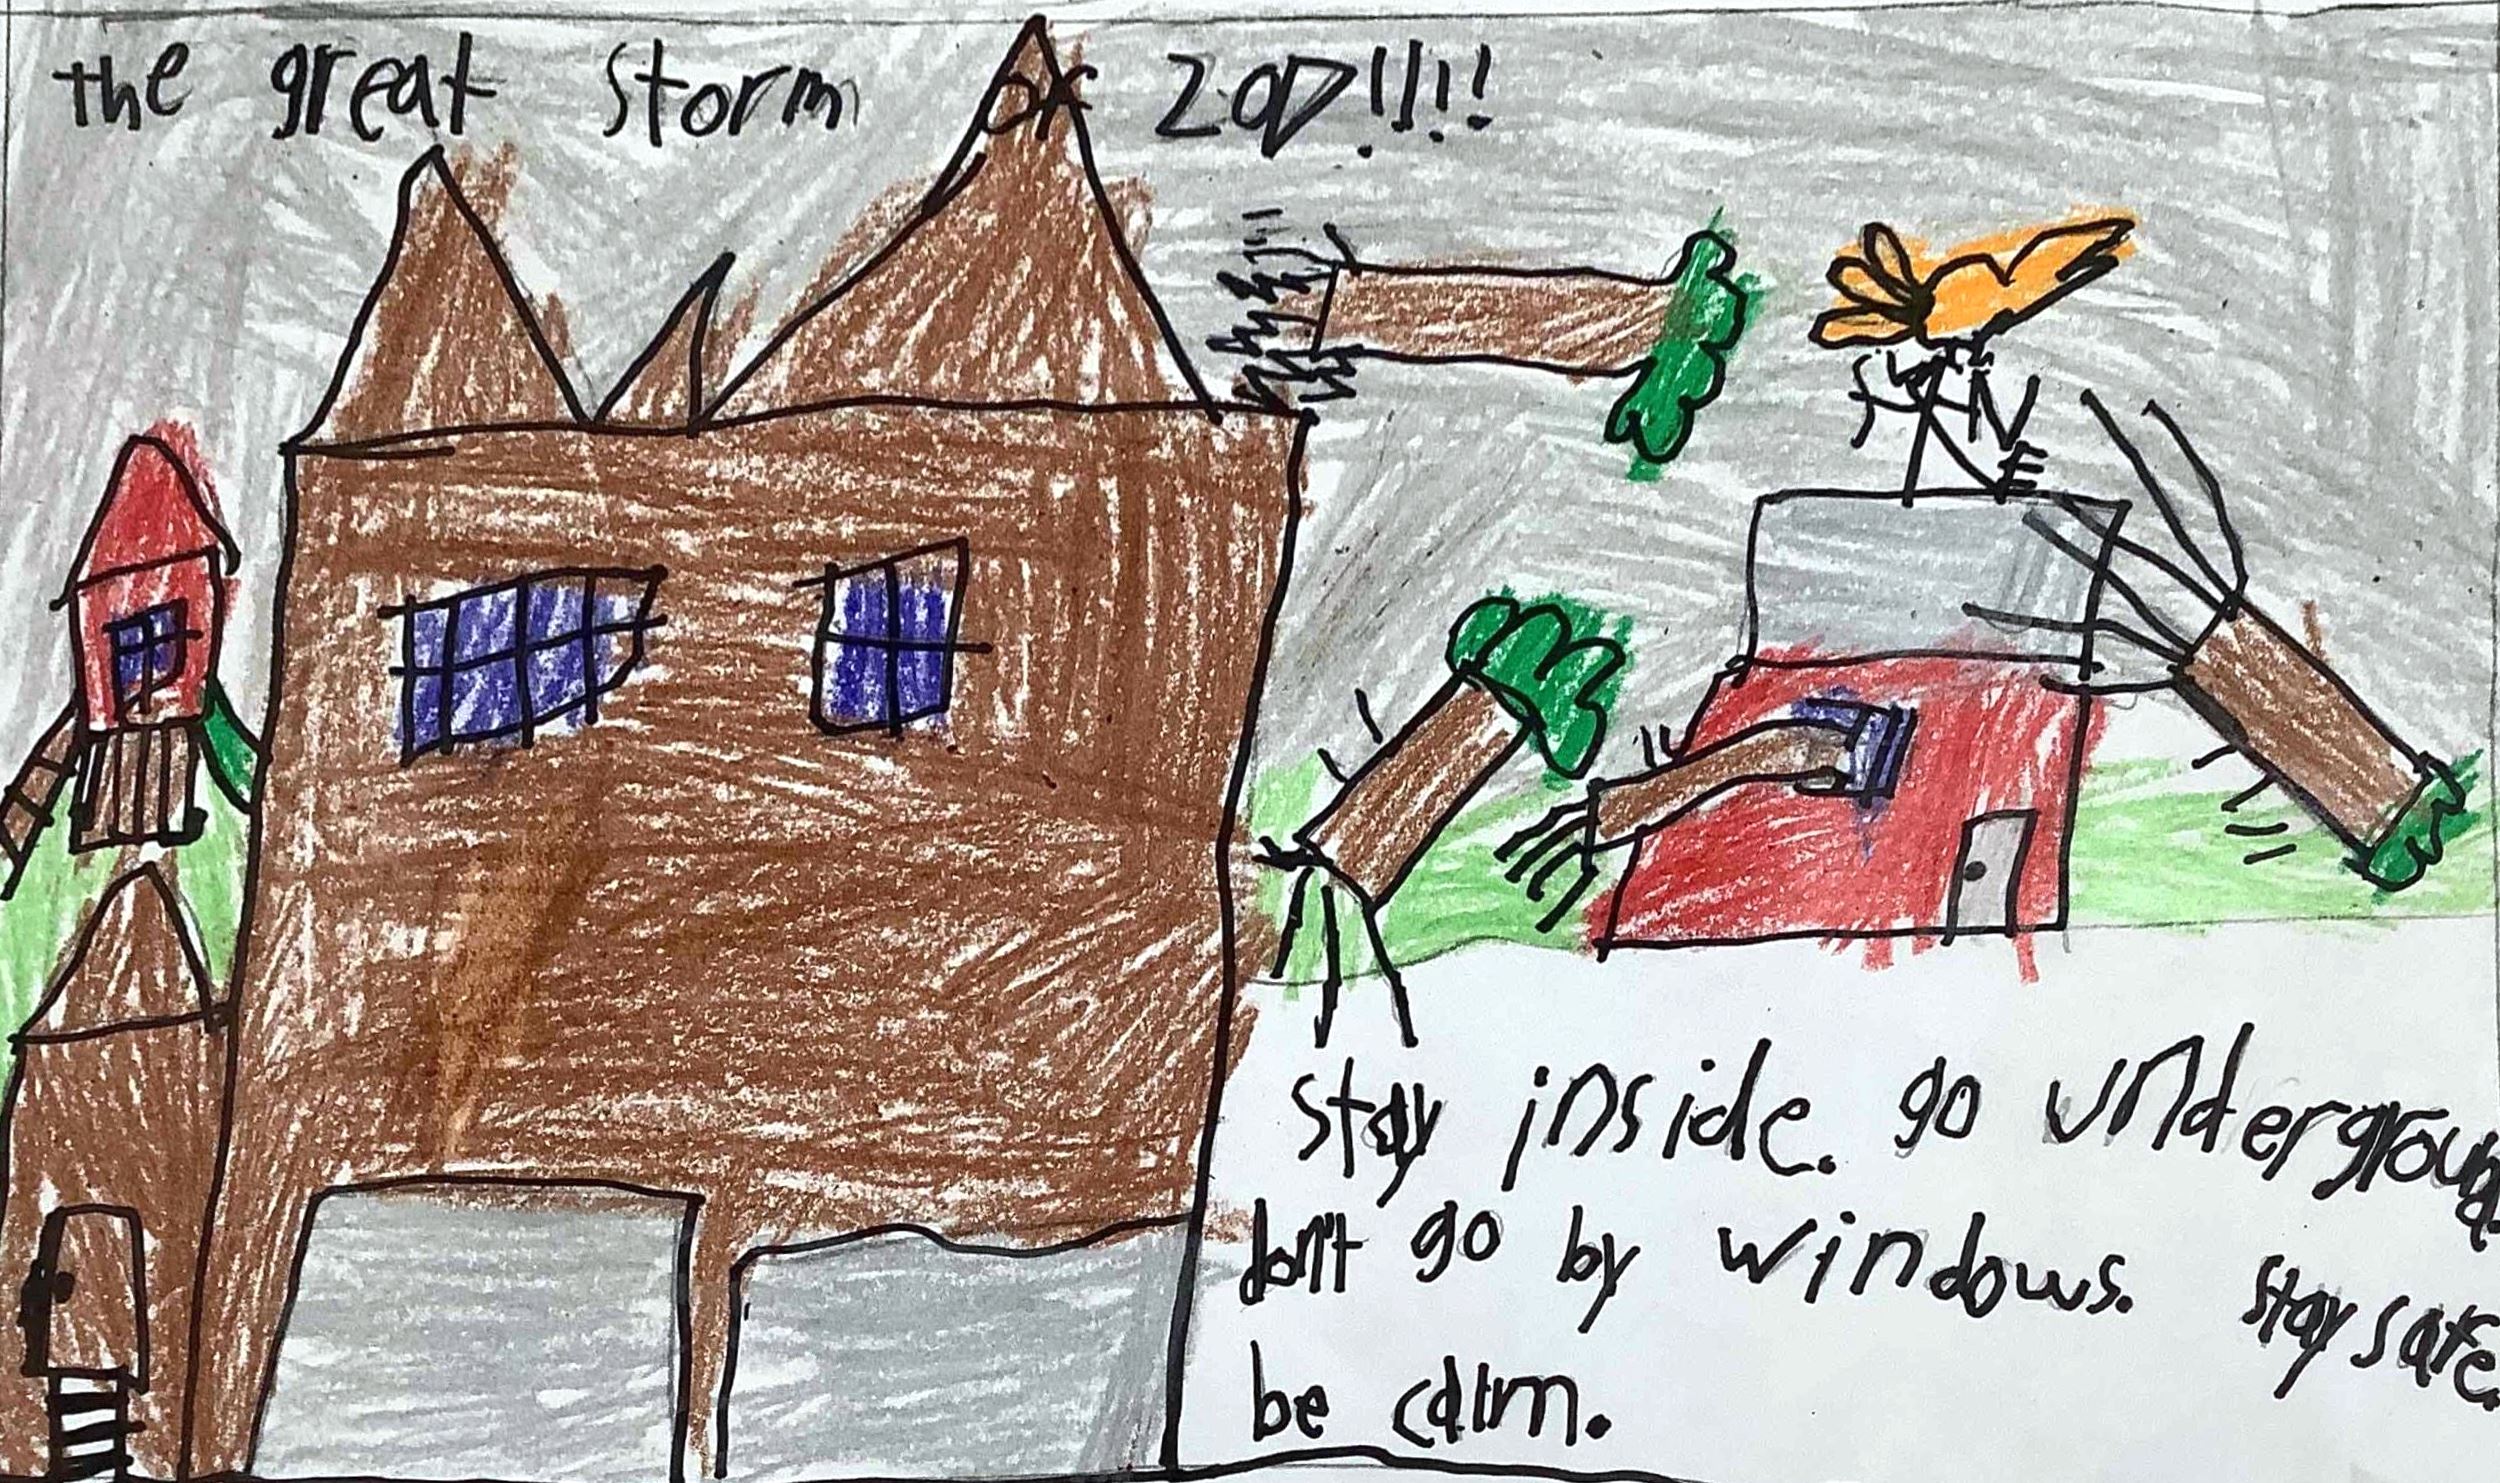 the great storm of
N
E
stay inside. go underground.
don't go by windows. stay safe.
be calm.